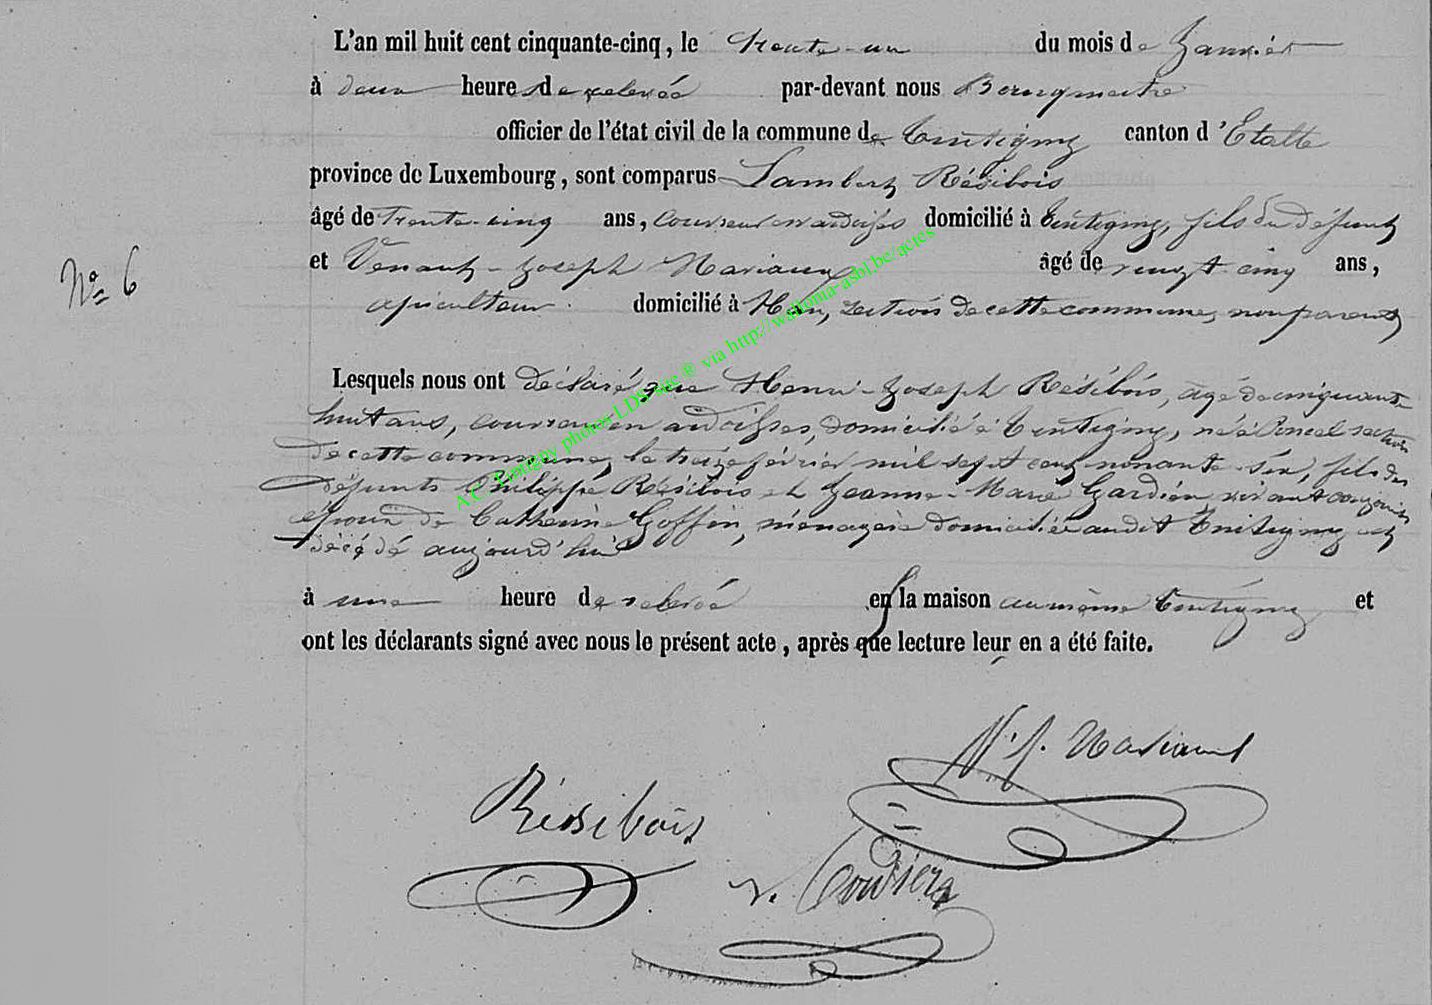 L'an mil huit cent cinquante-cinq, le trente-un du mois de Janvier
à deux heures de relevée par-devant nous Bourgmestre
officier de l'état civil de la commune de Tintigny canton d'Etalle
province de Luxembourg, sont comparus Lambert Résibois
âgé de trente-cinq ans, couvreur en ardoises domicilié à Tintigny, fils du défunt
N° 6
et Venant-Joseph Mariaux âgé de vingt cinq ans,
apiculteur domicilié à Han, section de cette commune, non parent
Lesquels nous ont déclaré que Henri-Joseph Résibois, âgé de cinquante-
huit ans, couvreur en ardoises, domicilié à Tintigny, né à Poncel section
de cette commune, le treize février mil sept cent nonante-six, fils des
défunts Philippe Résibois et Jeanne-Marie Gardien vivant conjoints
époux de Catherine Goffin, ménagère domiciliée audit Tintigny est
décédé aujourd'hui
à une heure de relevée en la maison au même Tintigny et
ont les déclarants signé avec nous le présent acte, après que lecture leur en a été faite.
V. J. Mariaux
Résibois
A.C. Tintigny photos LDS site ® via http://wallonia-asbl.be/actes